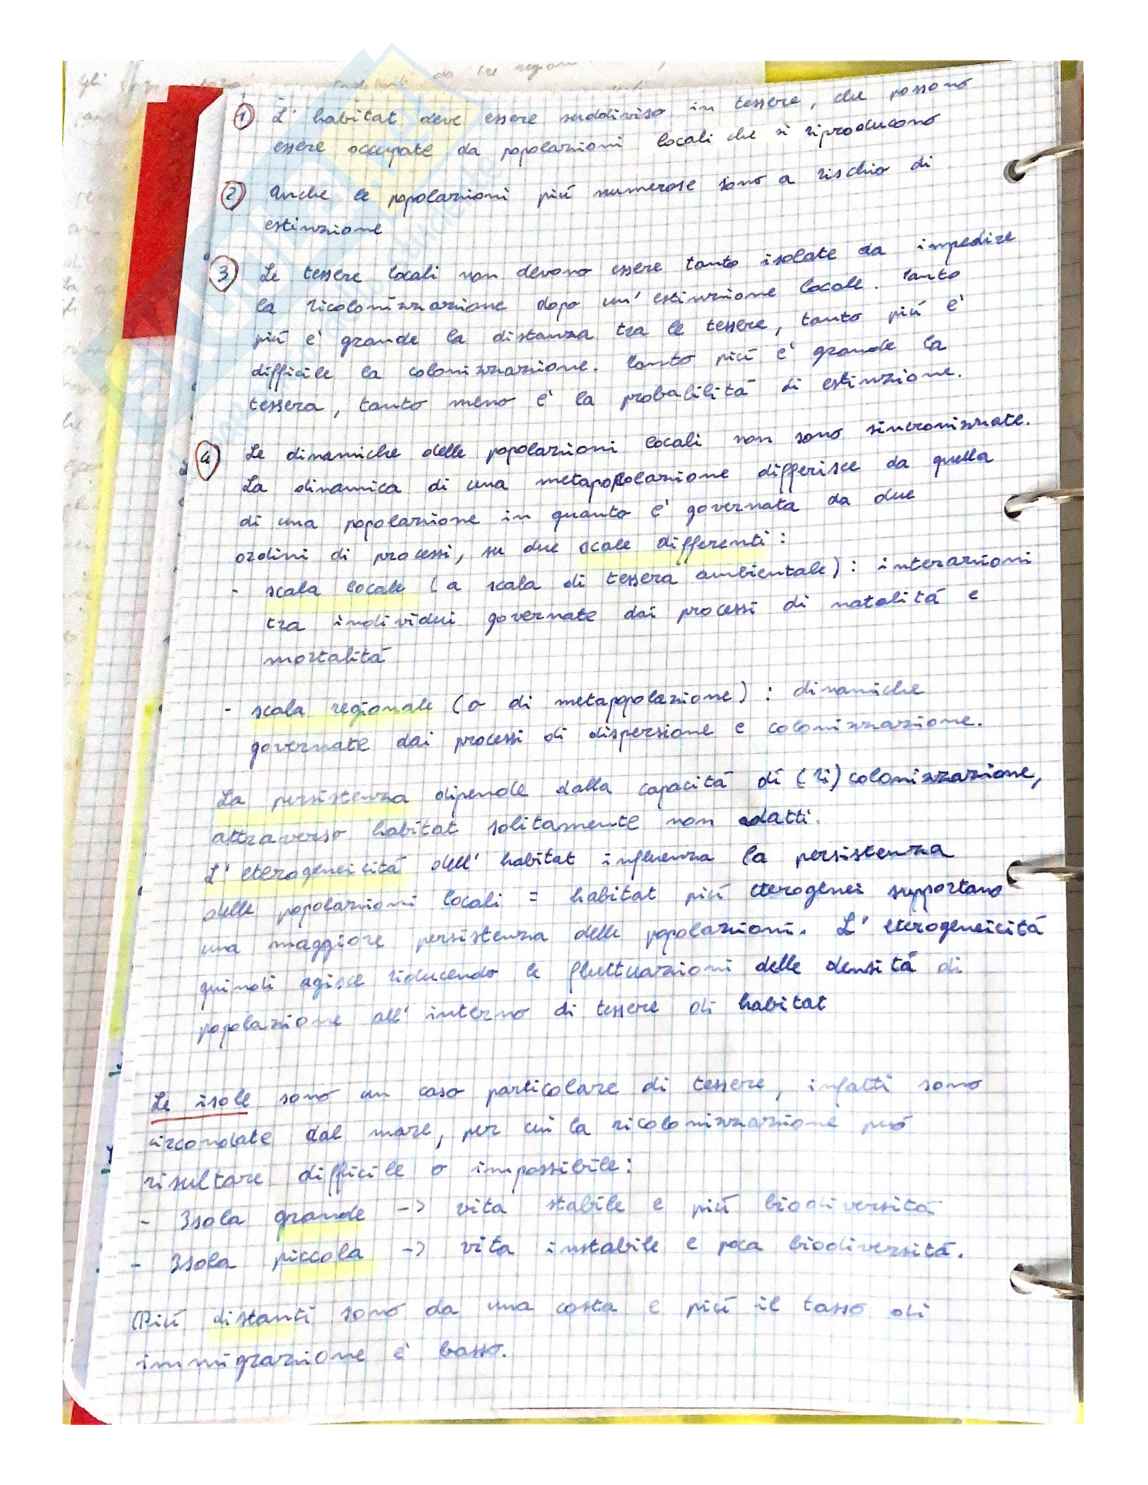 ① L'habitat deve essere suddiviso in tessere, che possono
essere occupate da popolazioni locali che si riproducono
② Anche le popolazioni più numerose sono a rischio di
estinzione
③ Le tessere locali non devono essere tanto isolate da impedire
la ricolonizzazione dopo un'estinzione locale. Tanto
più è grande la distanza tra le tessere, tanto più è
difficile la colonizzazione. Tanto più è grande la
tessera, tanto meno è la probabilità di estinzione.
④ Le dinamiche delle popolazioni locali non sono sincronizzate.
La dinamica di una metapopolazione differisce da quella
di una popolazione in quanto è governata da due
ordini di processi, su due scale differenti:
- scala locale (a scala di tessera ambientale): interazioni
tra individui governate dai processi di natalità e
mortalità
- scala regionale (o di metapopolazione): dinamiche
governate dai processi di dispersione e colonizzazione.
La persistenza dipende dalla capacità di (ri)colonizzazione,
attraverso habitat solitamente non adatti.
L'eterogeneicità dell'habitat influenza la persistenza
delle popolazioni locali = habitat più eterogenei supportano
una maggiore persistenza delle popolazioni. L'eterogeneicità
quindi agisce riducendo le fluttuazioni delle densità di
popolazione all'interno di tessere di habitat
Le isole sono un caso particolare di tessere, infatti sono
circondate dal mare, per cui la ricolonizzazione può
risultare difficile o impossibile:
- Isola grande -> vita stabile e più biodiversità
- Isola piccola -> vita instabile e poca biodiversità.
Più distanti sono da una costa e più il tasso di
immigrazione è basso.